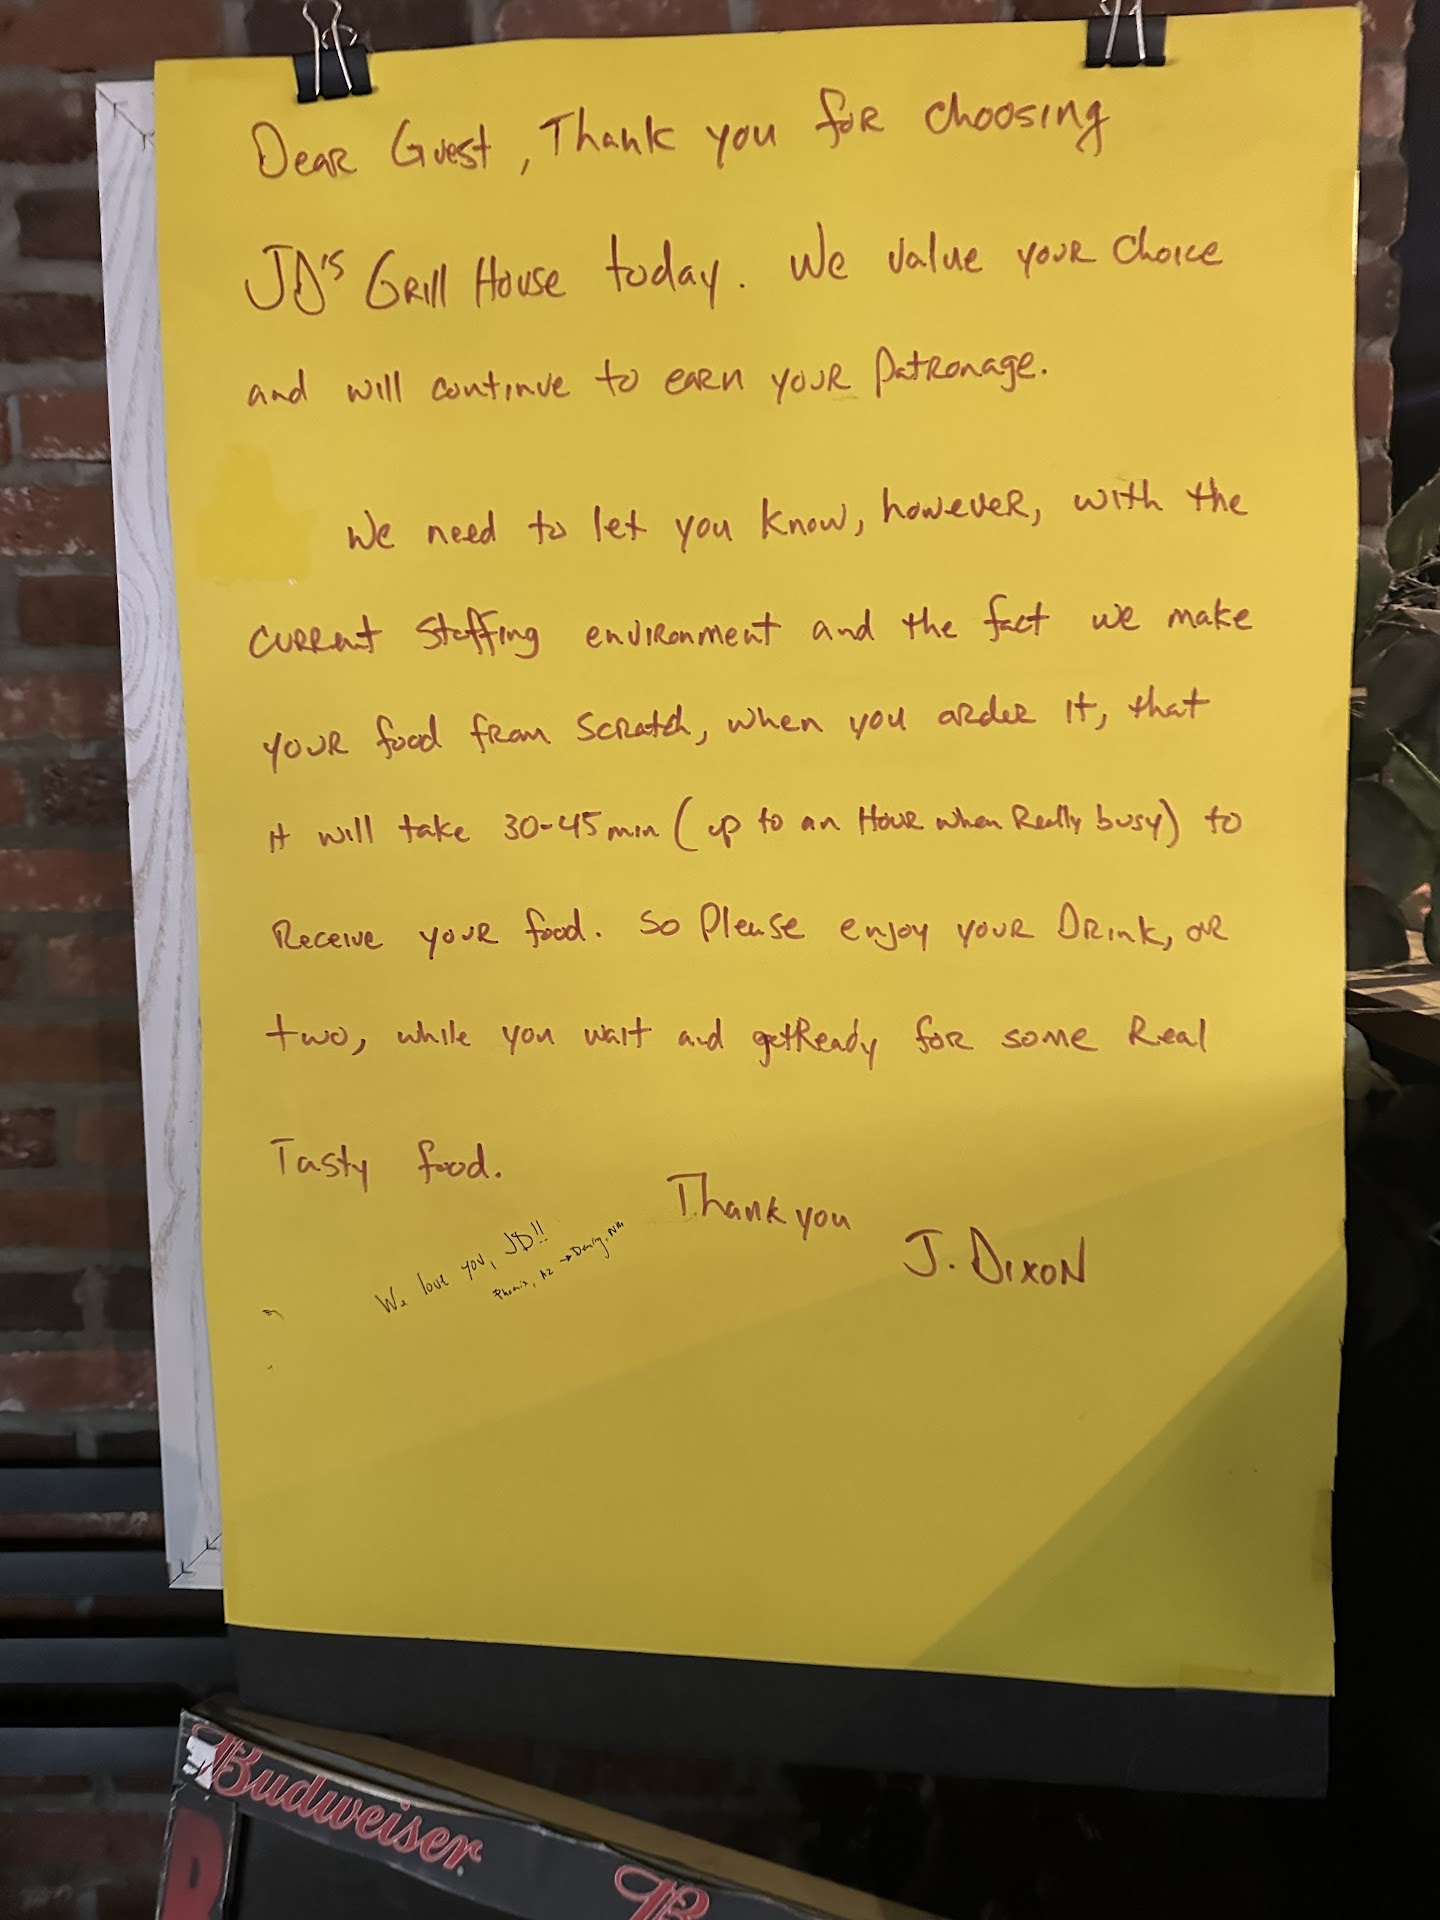 Dear Guest, Thank you for choosing
JD's Grill House today. We value your choice
and will continue to earn your patronage.
We need to let you know, however, with the
current staffing environment and the fact we make
your food from scratch, when you order it, that
it will take 30-45 min (up to an Hour when Really busy) to
Receive your food. So Please enjoy your Drink, or
two, while you wait and get Ready for some Real
Tasty food.
Thank you
J. Dixon
We love you, JD!!
Phoenix, AZ → Deming, NM
Budweiser
B